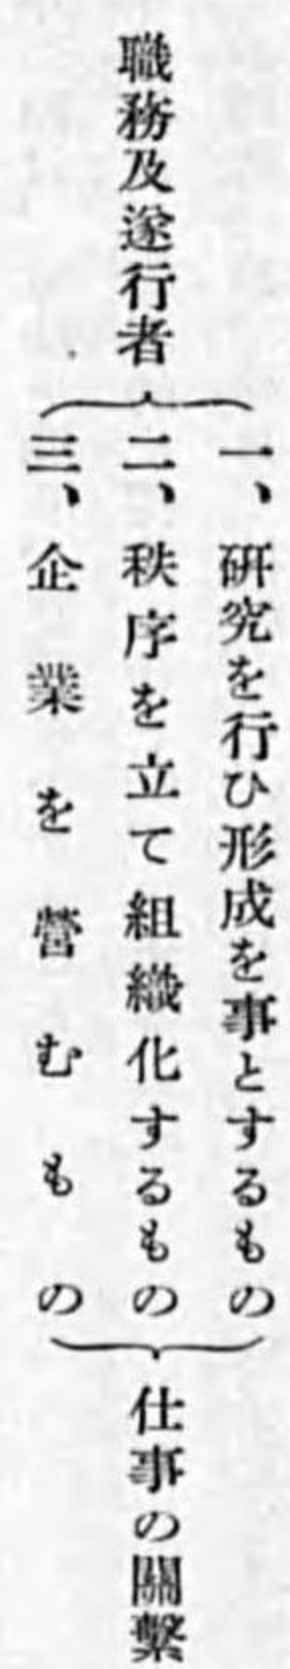 職務及遂行者
一、研究を行ひ形成を事とするもの
二、秩序を立て組織化するもの
三、企業を營むもの
仕事の關繫